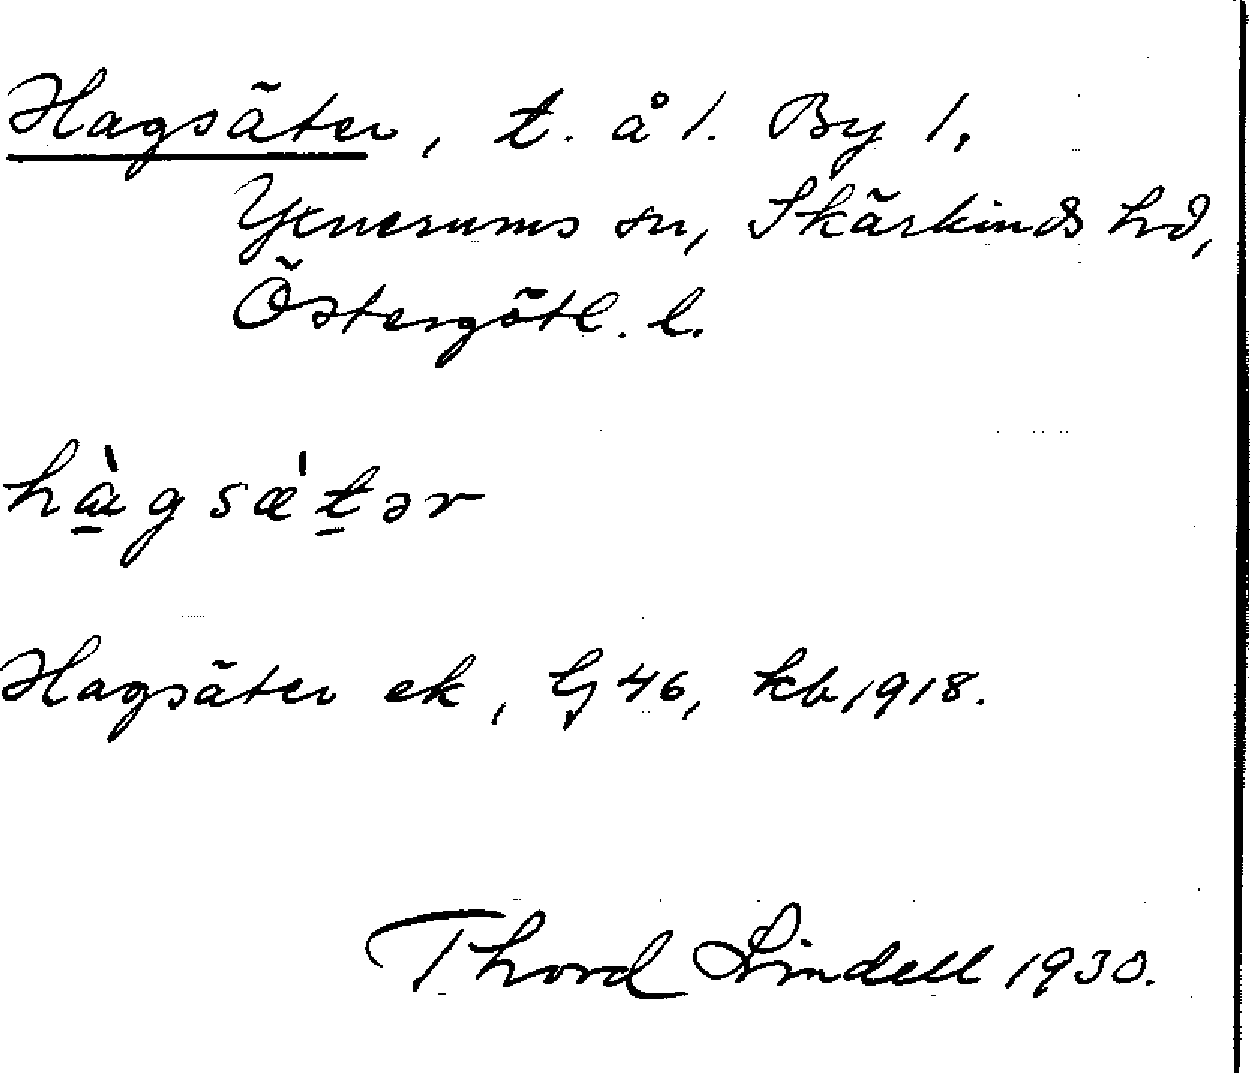 Hagsäter, t. å 1. By 1.
Yxnerums sn, Skärkinds hd,
Östergötl. l.
hàgsæ̀tər
Hagsäter ek, G 46, kb 1918.
Thord Lindell 1930.